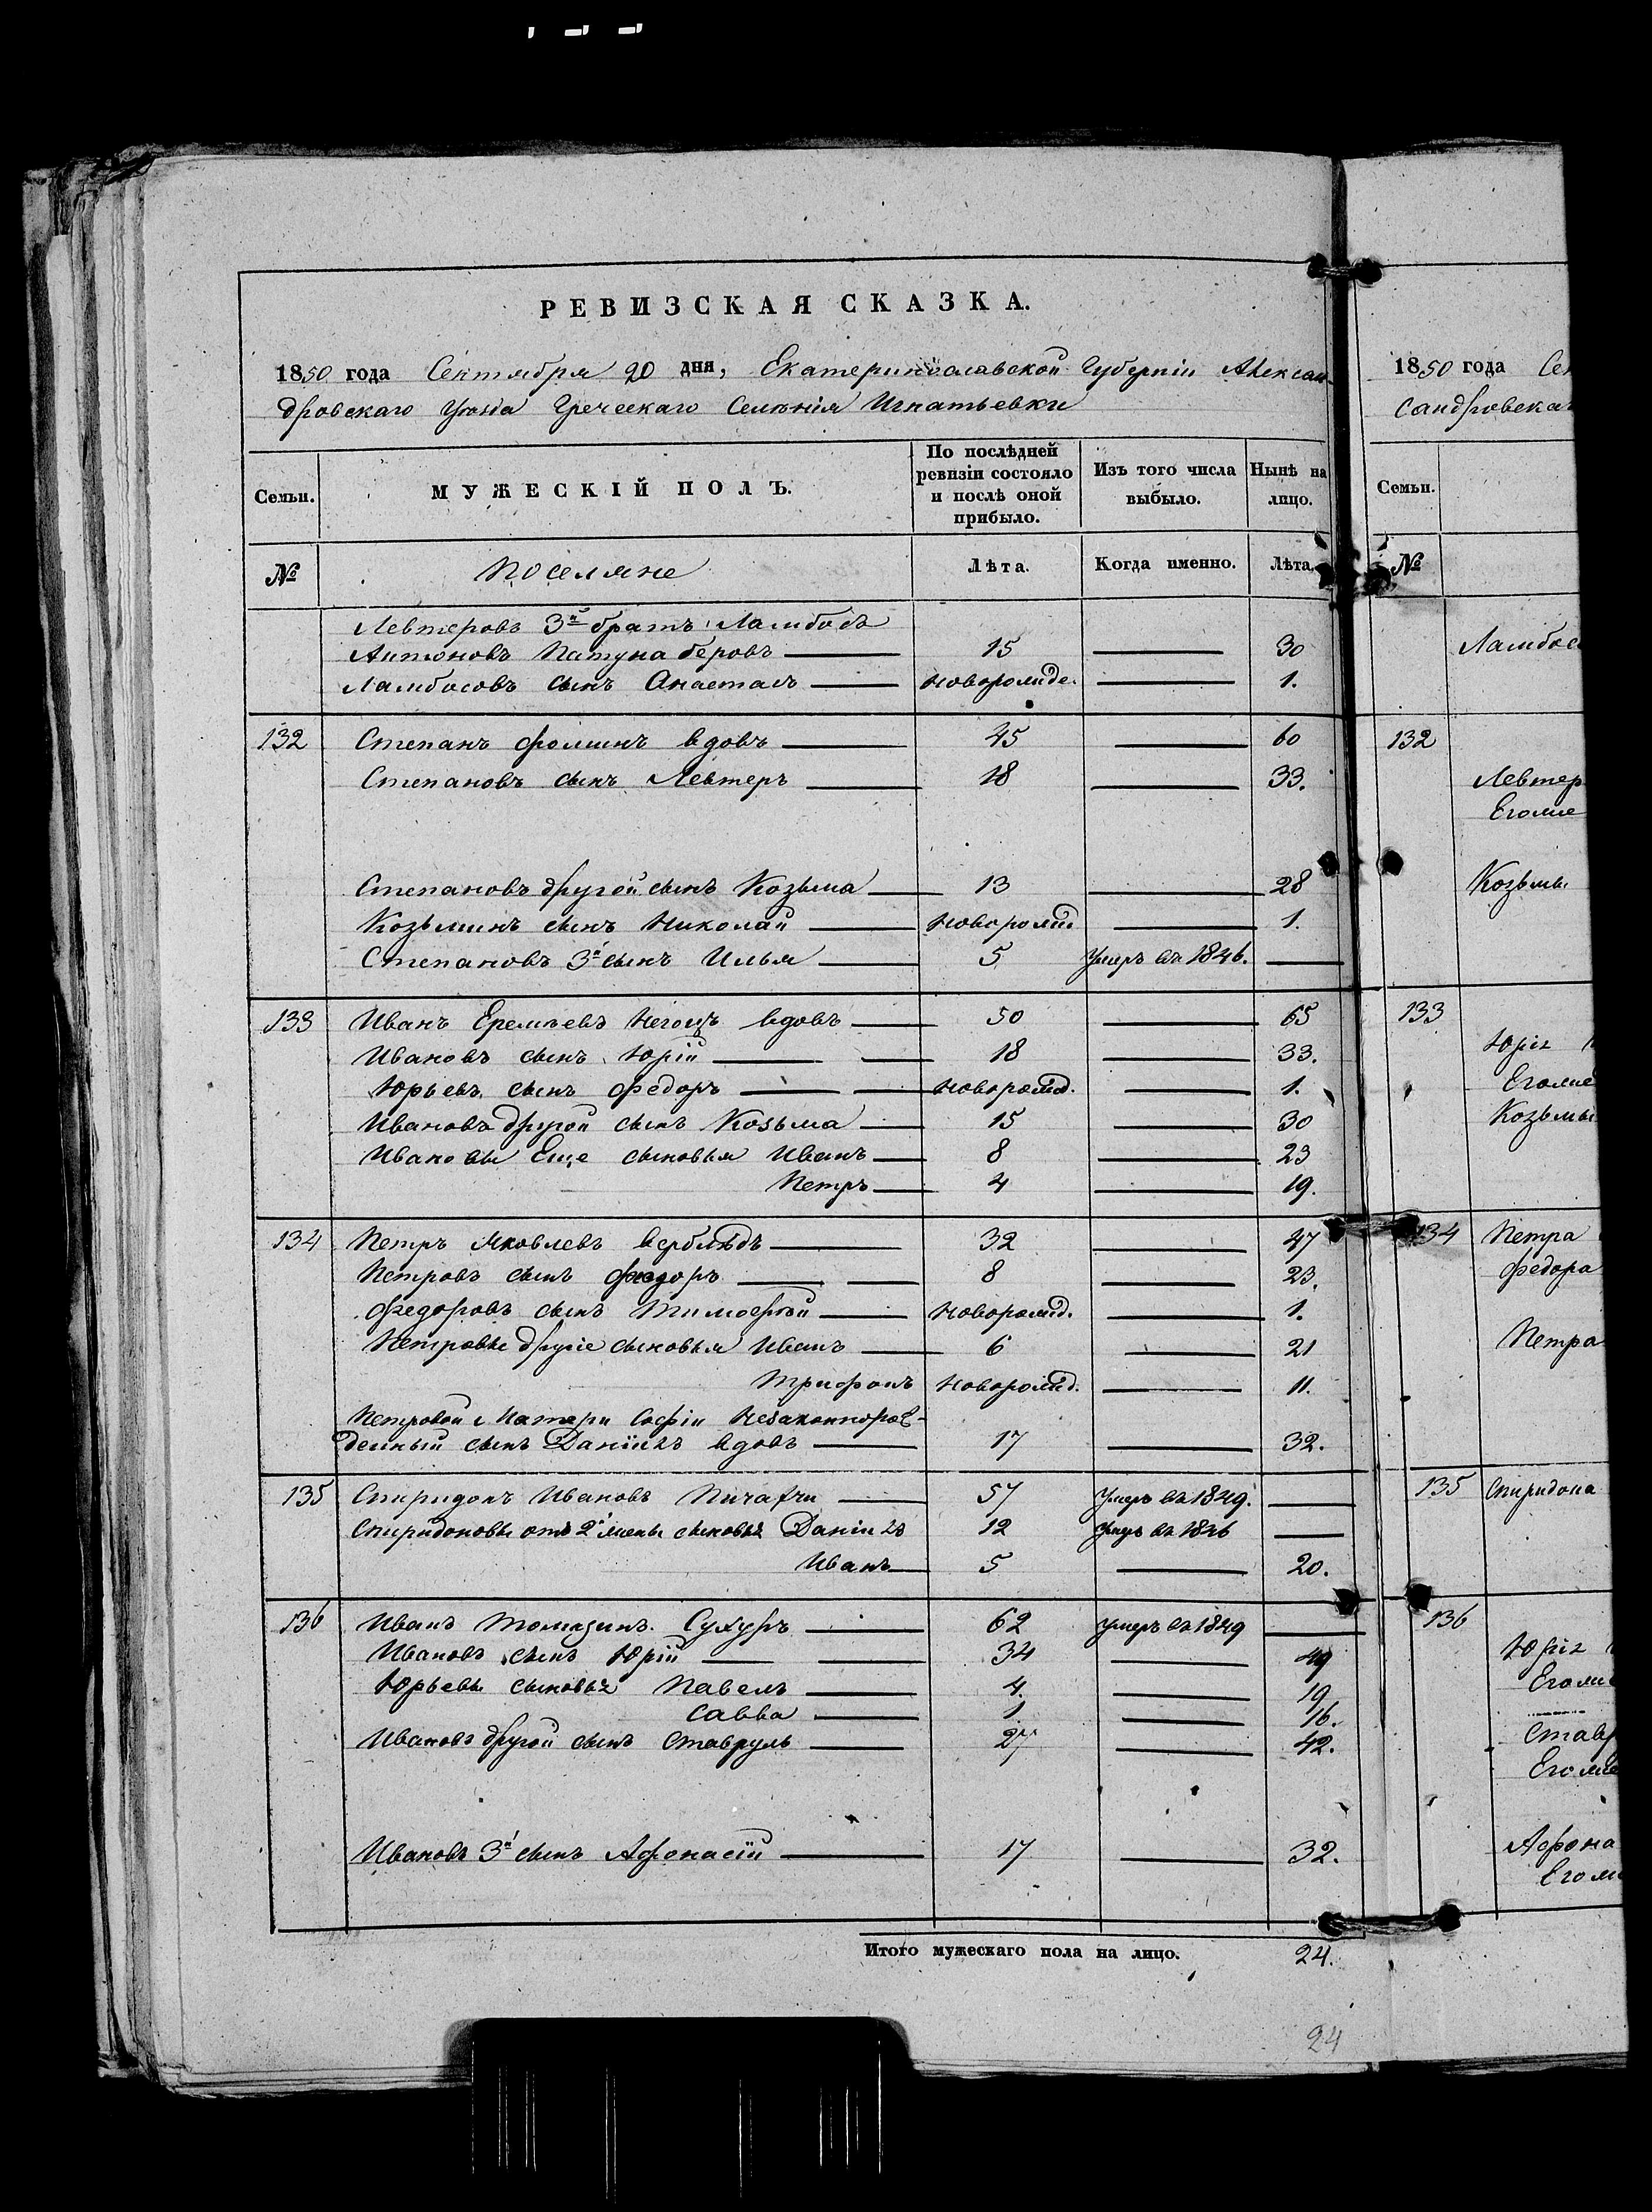 РЕВИЗСКАЯ СКАЗКА.
1850 года Сентября 20 дня, Екатеринославской Губерніи Алексан-
дровскаго Уѣзда Греческаго Селѣнія Игнатьевки
Семьи.
МУЖЕСКІЙ ПОЛЪ.
По послѣдней ревизіи состояло и послѣ оной прибыло.
Изъ того числа выбыло.
Нынѣ на лицо.
№ Поселяне Лѣта. Когда именно. Лѣта.
Левтеровъ 3й братъ Ламбосъ
Антоновъ 15 30
Ламбосовъ сынъ Анастасъ новорожде. 1.
132 Степанъ Фоминъ вдовъ 45 60
Степановъ сынъ Левтеръ 18 33.
Степановъ другой сынъ Козьма 13 28
Козьминъ сынъ Николай новорожд. 1.
Степановъ 3й сынъ Илья 5 Умеръ въ 1846.
133 Иванъ Еремѣевъ вдовъ 50 65
Ивановъ сынъ Юрій 18 33.
Юрьевъ сынъ Федоръ новорожд. 1.
Ивановъ другой сынъ Козьма 15 30
Ивановы Еще сыновья Иванъ 8 23
Петръ 4 19.
134 Петръ Яковлевъ Верблюдъ 32 47
Петровъ сынъ Федоръ 8 23.
Федоровъ сынъ Тимофѣй новорожд. 1.
Петровы другіе сыновья Иванъ 6 21
Трифонъ новорожд. 11.
Петровой Матери Софіи Незаконнорож-
денный сынъ Даніилъ вдовъ 17 32.
135 Спиридонъ Ивановъ Пичахчи 57 Умеръ въ 1849.
Спиридоновы отъ 2й жены сыновья Даніилъ 12 Умеръ въ 1846
Иванъ 5 20.
136 Иванъ Томазинъ Сухуръ 62 умеръ въ 1849
Ивановъ сынъ Юрій 34 49
Юрьевы сыновья Павелъ 4. 19
Савва 1 16.
Ивановъ другой сынъ Ставруль 27 42.
Ивановъ 3й сынъ Афонасій 17 32.
Итого мужескаго пола на лицо. 24.
24
1850 года Сен
сандровска
Семьи.
№
Ламбос
132
Левтер
Егоже
Козьмы
133
Юрія
Егоже
Козьмы
134 Петра
Федора
Петра
135 Спиридона
136
Юрія
Егоже
Ставр
Егоже
Афона
Егоже